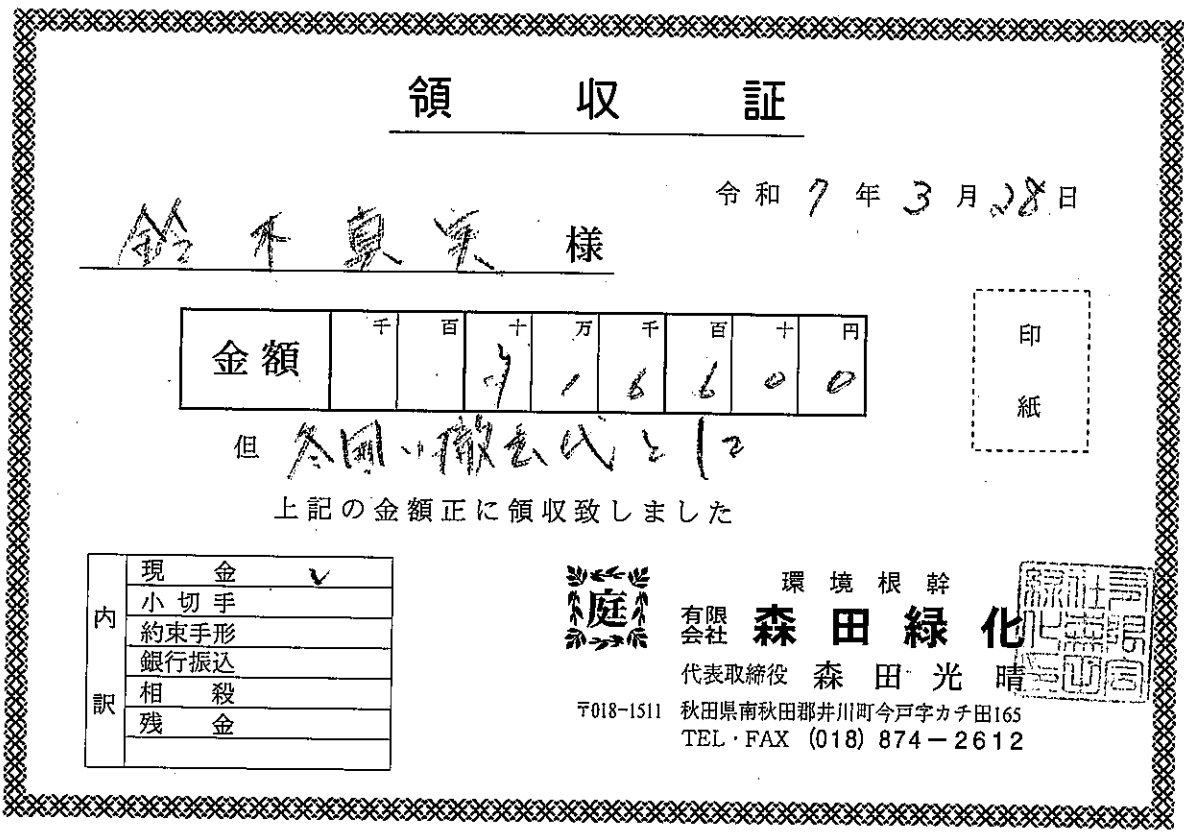 領収証
令和 7 年 3 月 28 日
鈴木真実 様
金額 千 百 十 万 千 百 十 円
¥ 1 6 6 0 0
但 冬囲い撤去代として
上記の金額正に領収致しました
印紙
内訳
現金 ✓
小切手
約束手形
銀行振込
相殺
残金
庭
環境根幹
有限会社 森田緑化
代表取締役 森田光晴
〒018-1511 秋田県南秋田郡井川町今戸字カチ田165
TEL・FAX (018) 874-2612